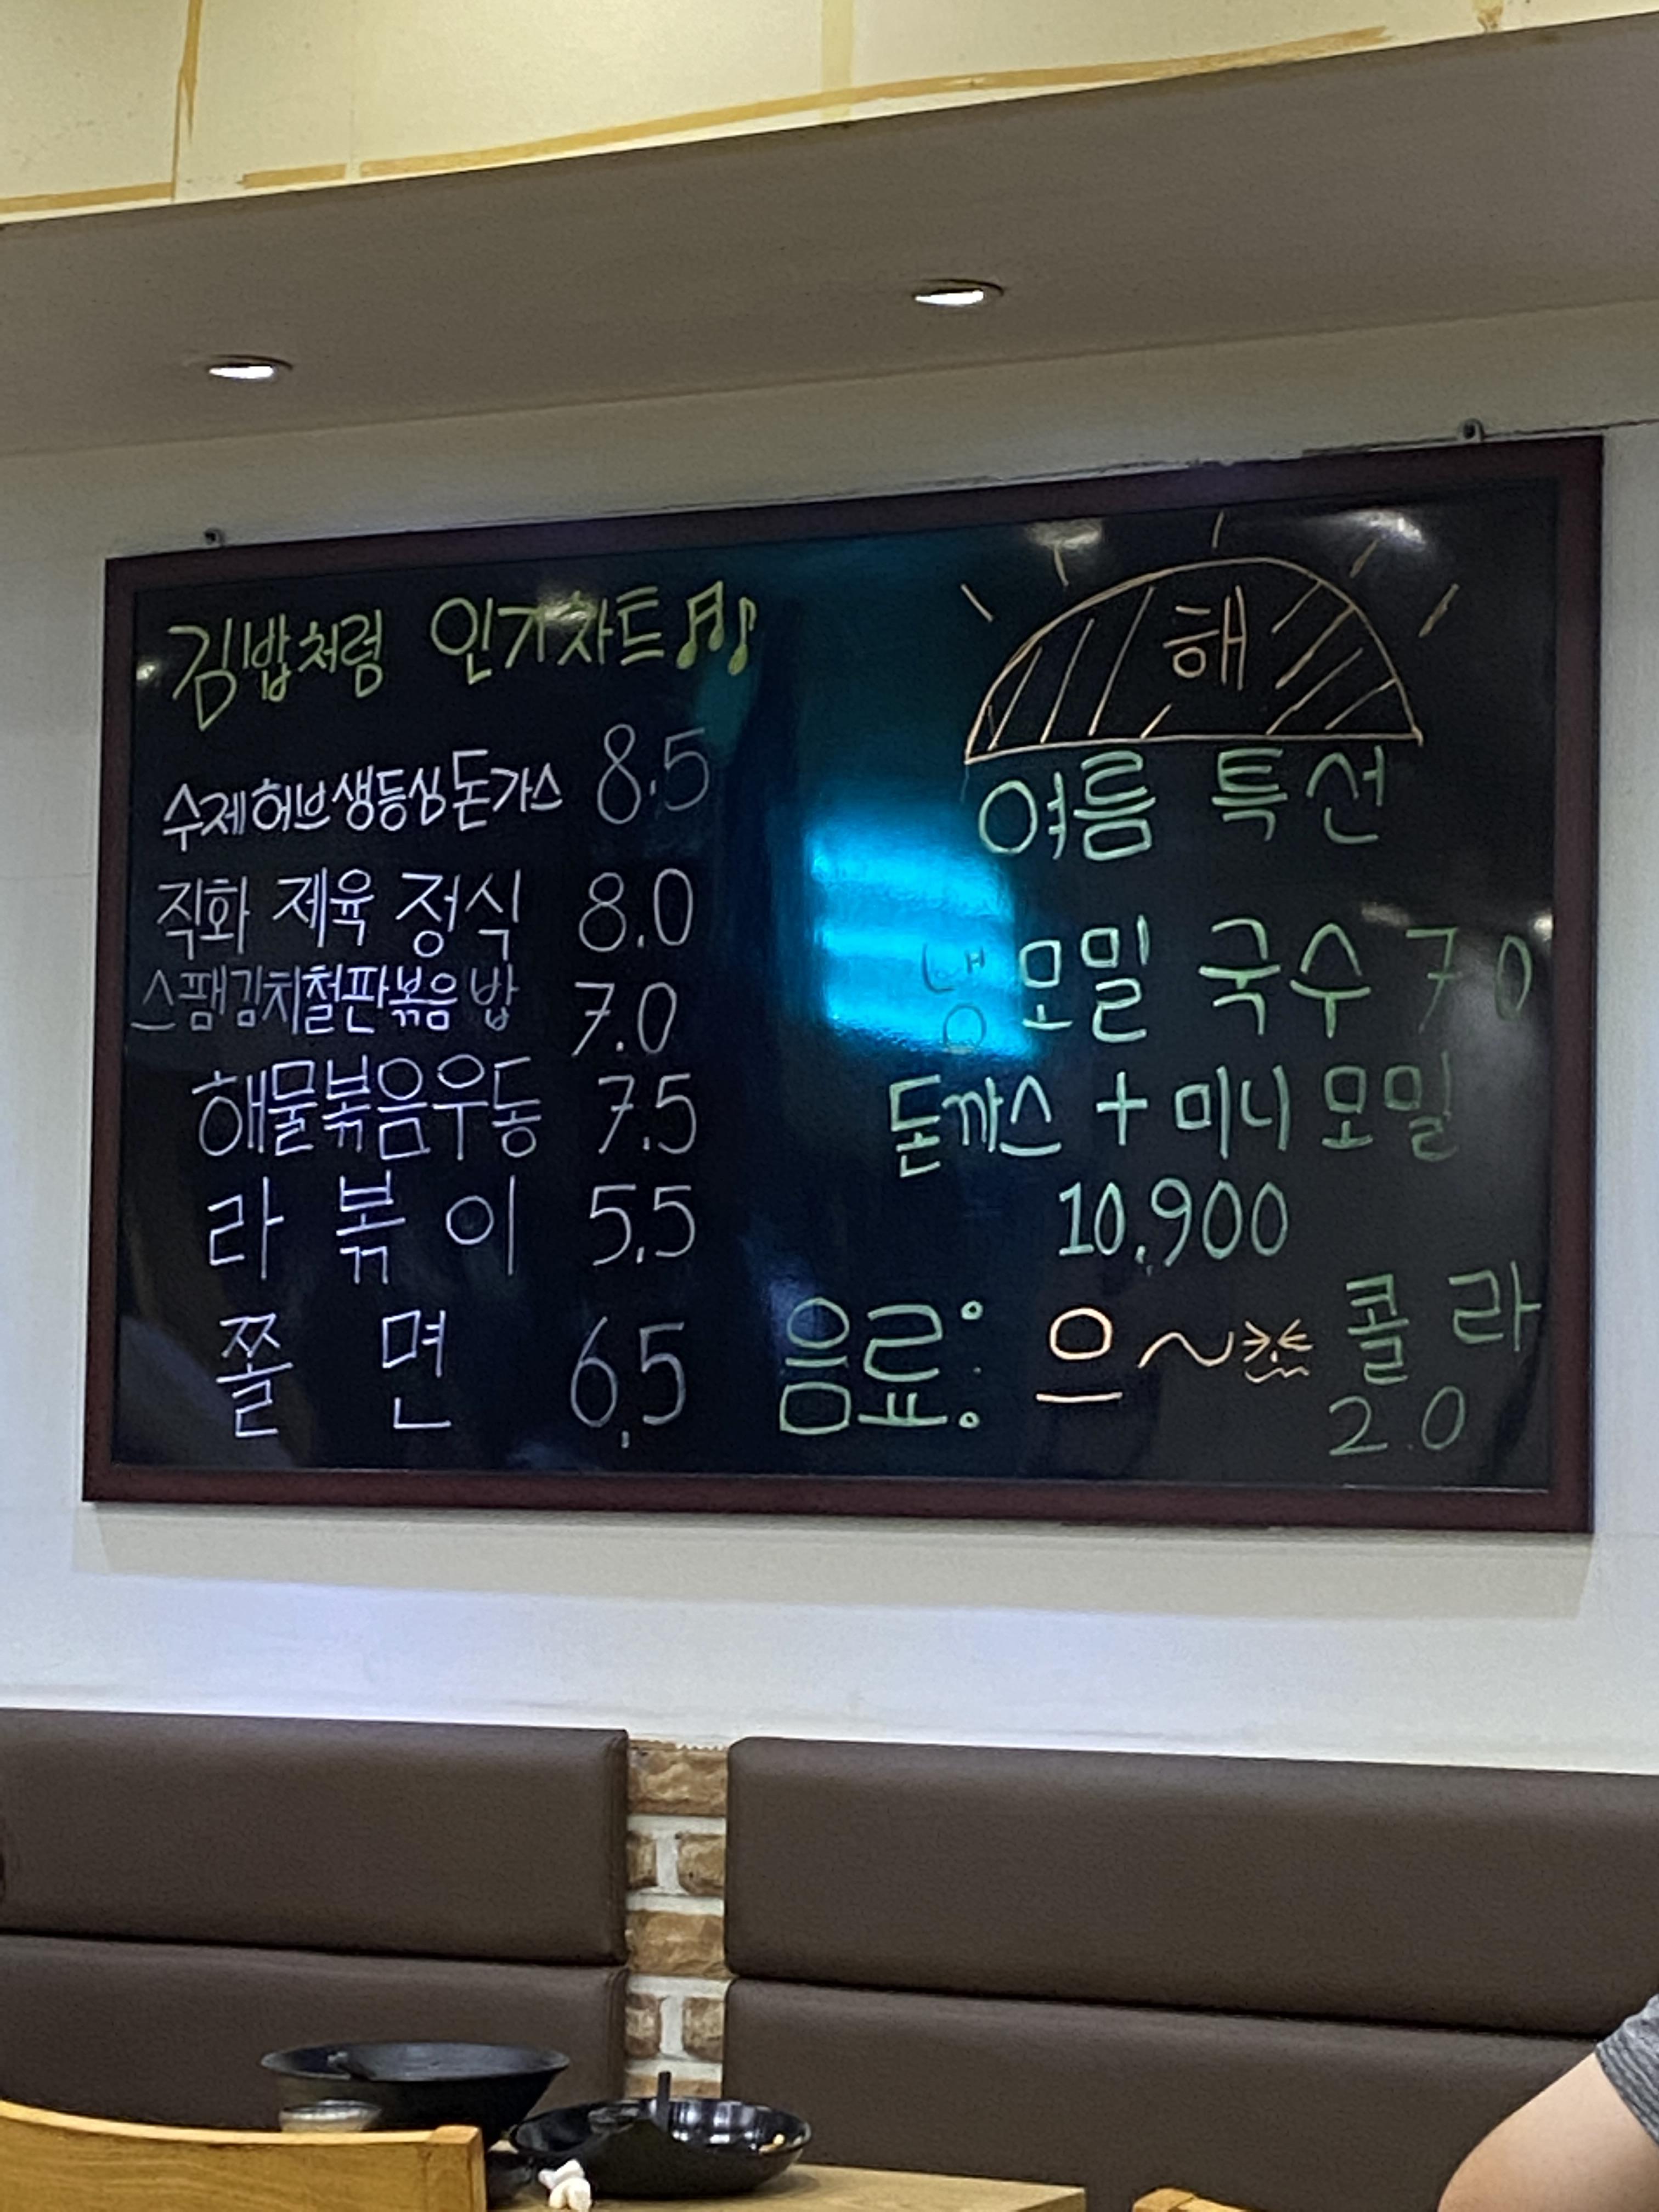 김밥처럼 인기차트
수제허브생등심돈가스 8.5
직화 제육 정식 8.0
스팸김치철판볶음밥 7.0
해물볶음우동 7.5
라볶이 5.5
쫄면 6.5
해
여름 특선
냉모밀 국수 7 0
돈까스 + 미니모밀
10,900
음료: 으~ 콜라
2.0